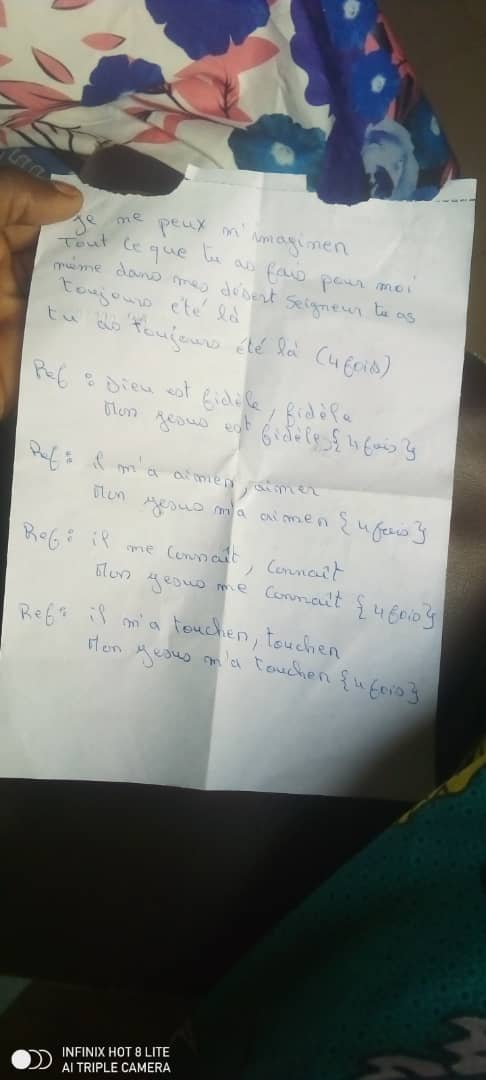 Je me peux m'imaginer
Tout ce que tu as fais pour moi
même dans mes désert Seigneur tu as
toujours été là
tu as toujours été là (4 fois)
Ref : Dieu est fidèle, fidèle
Mon Jesus est fidèle {4 fois}
Ref : il m'a aimer, aimer
Mon Jesus m'a aimer {4 fois}
Ref : il me connaît, connaît
Mon Jesus me connaît {4 fois}
Ref : il m'a toucher, toucher
Mon Jesus m'a toucher {4 fois}
INFINIX HOT 8 LITE
AI TRIPLE CAMERA